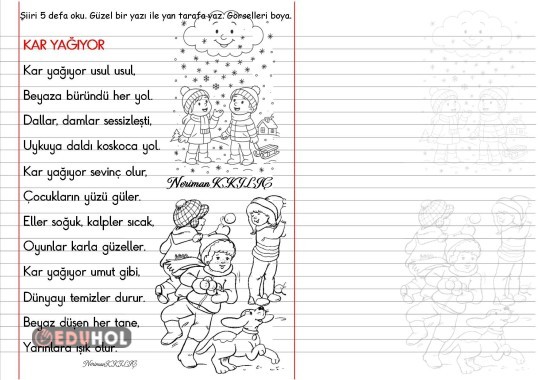 Şiiri 5 defa oku. Güzel bir yazı ile yan tarafa yaz. Görselleri boya.
KAR YAĞIYOR
Kar yağıyor usul usul,
Beyaza büründü her yol.
Dallar, damlar sessizleşti,
Uykuya daldı koskoca yol.
Kar yağıyor sevinç olur,
Neriman KKILIÇ
Çocukların yüzü güler.
Eller soğuk, kalpler sıcak,
Oyunlar karla güzeller.
Kar yağıyor umut gibi,
Dünyayı temizler durur.
Beyaz düşen her tane,
EDUHOL
Yarınlara ışık olur.